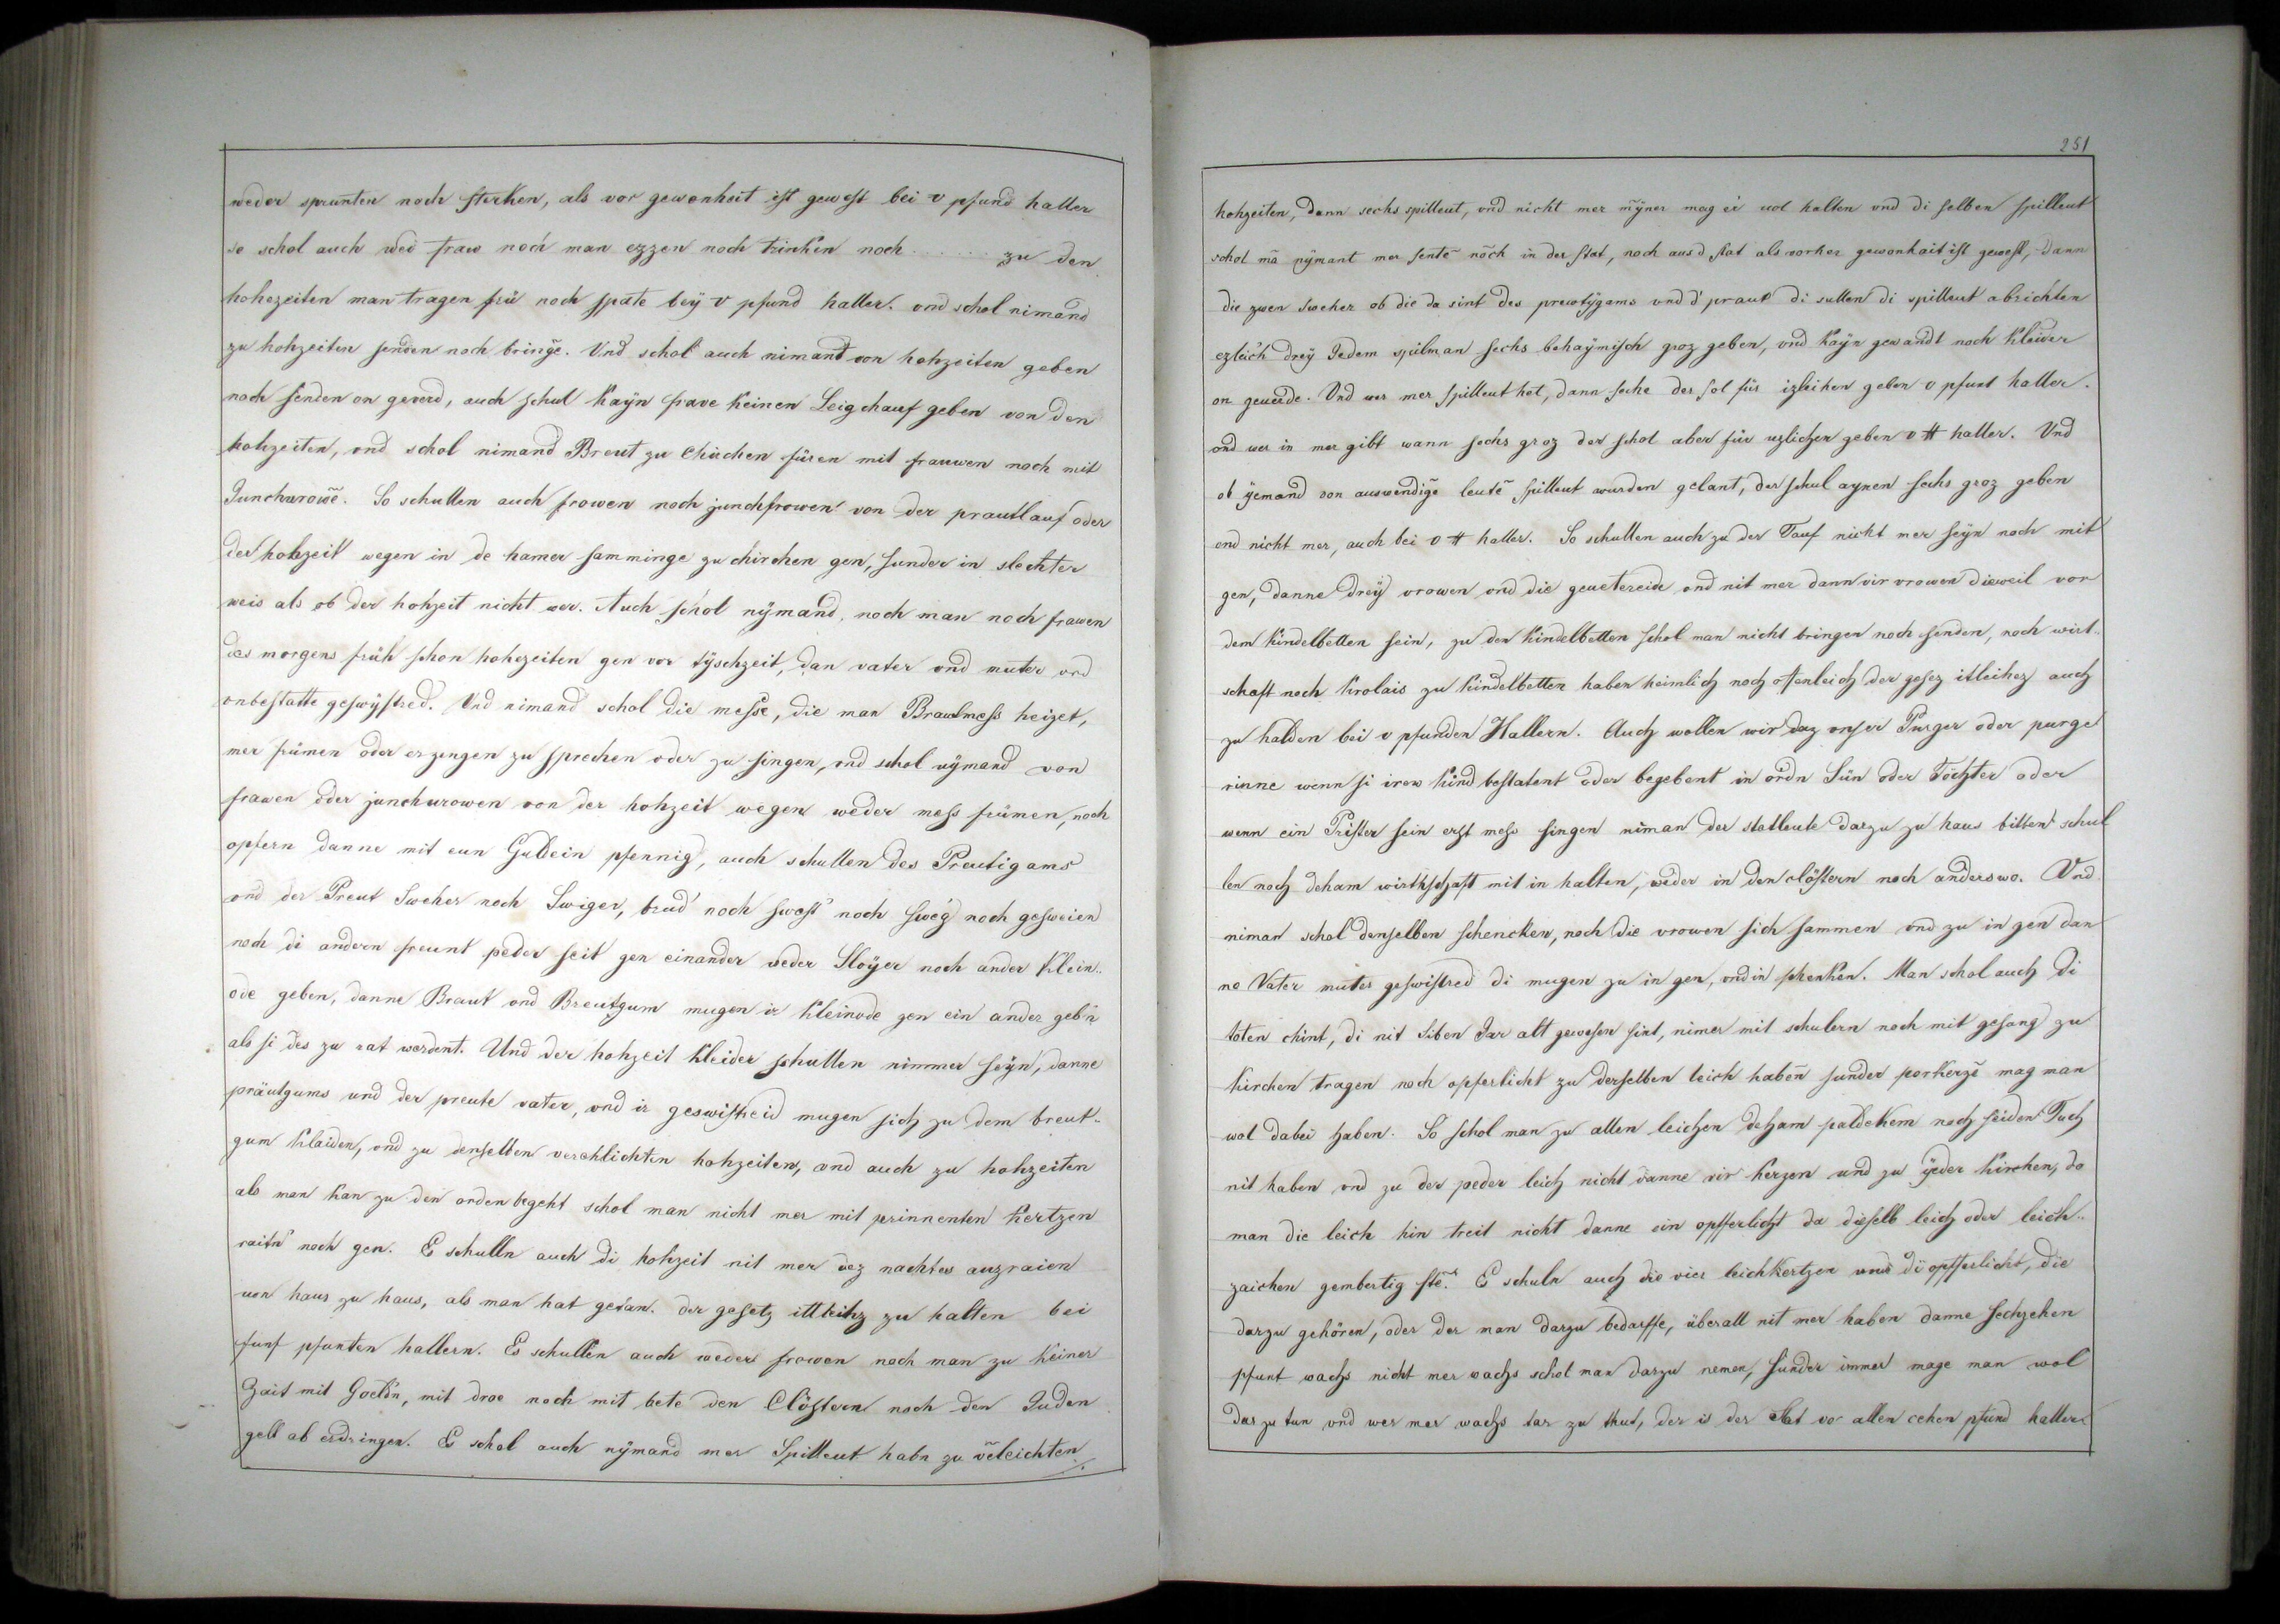 weder sprunten noch sterken, als vor gewonheit ist gewest bei v pfund haller
so schol auch wed fraw noch man ezzen noch trinken noch ...... zu den
hohezeiten man tragen frü noch spate beÿ v pfund haller. ond schol nimand
zu hohzeiten senden noch bringē. Vnd schol auch nimand von hohzeiten geben
noch senden on geverd, auch schul kaÿn frave keinen Leigchauf geben von den
hohzeiten, ond schol nimand Breut zu Chirchen füren mit frauwen noch mit
Junchurowē. So schullen auch frowen noch junchfrowen von der prautlauf oder
der hohzeit wegen in de hamer samminge zu chirchen gen, sunder in slechter
weis als ob der hohzeit nicht wer. Auch schol nÿmand, noch man noch frawen
des morgens früh schon hohezeiten gen vor tÿschzeit, dan vater ond muter ond
onbestatte geswÿstred. Vnd nimand schol die messe, die man Brautmess heizet,
mer frümen oder erzengen zu sprechen oder zu singen, ond schol nÿmand von
frawen oder junchurowen von der hohzeit wegen weder mess frümen, noch
opfern danne mit eun Guldein pfennig, auch schullen des Preutigams
ond der Preut Sweher noch Swiger, brud' noch swest' noch sweg noch gesweien
noch di andern freunt peder seit gen einander weder Sloÿer noch ander klein..
ode geben, danne Braut ond Breutgum mugen ir kleinode gen ein ander geb'n
als si des zu rat werdent. Und der hohzeit kleider schullen nimmer seÿn, danne
präutgums und der preute vater, ond ir geswistreid mugen sich zu dem breut..
gum klaiden, ond zu denselben verehlichten hohzeiten, ond auch zu hohzeiten
als man kan zu den orden begeht schol man nicht mer mit prinnenten kertzen
raitn' noch gen. E schulln auch di hohzeit nit mer dez nachtes auzraien
von haus zu haus, als man hat getan. der gesetz ittleihz zu halten bei
funf pfunten hallern. Es schullen auch weder frowen noch man zu keiner
Zait mit Goetn, mit droe noch mit bete den Clöstern noch den Juden
gelt ab erdringen. E schol auch nÿmand mer Spilleut habn zu v̄eleichten
251
hohzeiten, dann sechs spilleut, ond nicht mer mÿner mag ei wol halten ond di selben spilleut
schol mā nÿmant mer sentē nöch in der stat, noch aus d stat als vorher gewonhait ist gewest, Dann
die zwen sweher ob die da sint des prewtÿgams vnd d' praut di sullen di spilleut abrichten
ezleich dreÿ Jedem spilman sechs behaÿmisch groz geben, vnd kaÿn gewandt noch kleider
on geuerde. Vnd wer mer spilleut het, dann seche der sol für izleihen geben v pfunt haller.
ond wer in mer gibt wann sechs groz der schol aber für uzlichen geben v ℔ haller. Vnd
ob ÿemand von auswendigē leutē spilleut wurden gelant, der schul aynen sechs groz geben
ond nicht mer, auch bei v ℔ haller. So schullen auch zu der Tauf nicht mer seÿn noch mit
gen, danne dreÿ vrowen ond die geuetereide ond nit mer dann vir vrowen dieweil vor
dem kindelbetten sein, zu den kindelbetten schol man nicht bringen noch senden, noch wirt..
schaft noch krolais zu kindelbetten haben heimlich noch ofenleich der gesez itleihez auch
zu halden bei v pfunden Hallern. Auch wollen wir daz onser Purger oder purge
rinne wenn si irew kind bestatent oder begebent in ordn Sün oder Töchter oder
wenn ein Prister sein erst mess singen niman der statleute darzu zu haus bitten schul
len noch deham wirthschaft mit in halten, weder in den clöstern noch anderswo. Vnd
niman schol denselben schencken, noch die vrowen sich sammen ond zu in gen dan
ne Vater muter geswistred di mugen zu in gen, ond in schenken. Man schol auch di
toten chint, di nit siben Jar alt gewesen sint, nimer mit schulern noch mit gesang zu
kirchen tragen noch opferlicht zu derselben leich haben sunder porkerzē mag man
wol dabei haben. So schol man zu allen leichen deham paldekem noch seiden Tuch
nit haben ond zu der peder leich nicht danne vir kerzen und zu ÿeder kirchen, do
man die leich hin treit nicht danne ein opfferlicht da dieselb leich oder leich..
zaichen gembertig stē. E schuln auch die vier leichkertzen und di opfferlicht, die
darzu gehören, oder der man darzu bedarffe, überall nit mer haben danne sechzehen
pfunt wachs nicht mer wachs schol man darzu nemen, sunder immer mage man wol
dar zu tun ond wer mer wachs tar zu thut, der is der Stat vo allen cehen pfund haller.